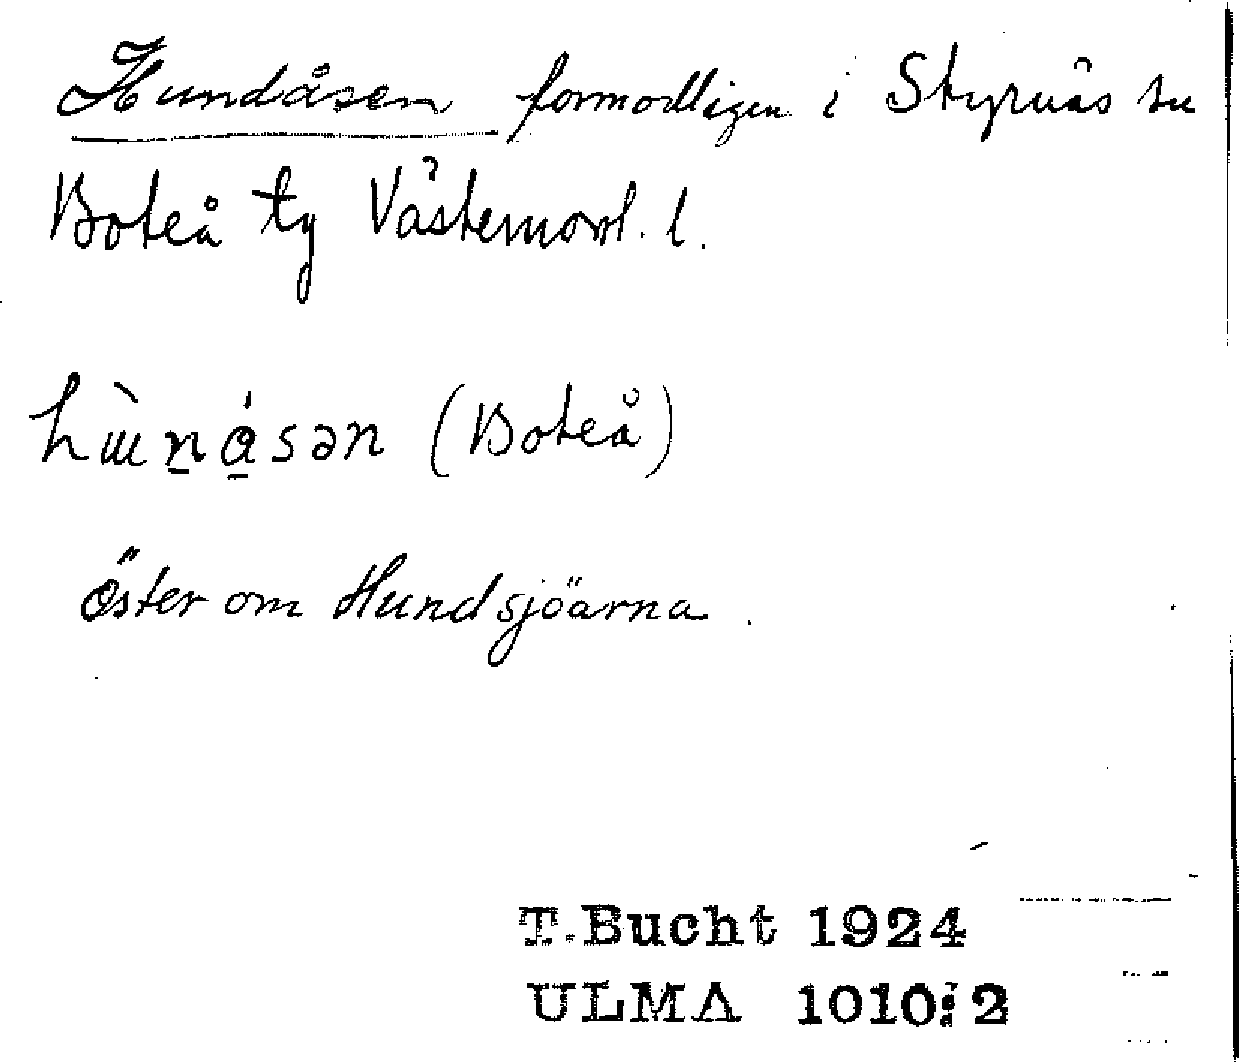 Hundåsen formodligen i Styrnäs sn
Boteå tg Västernorrl. l.
hùn̠ǻ̠sən (Boteå)
öster om Hundsjöarna.
T.Bucht 1924
ULMA 1010:2